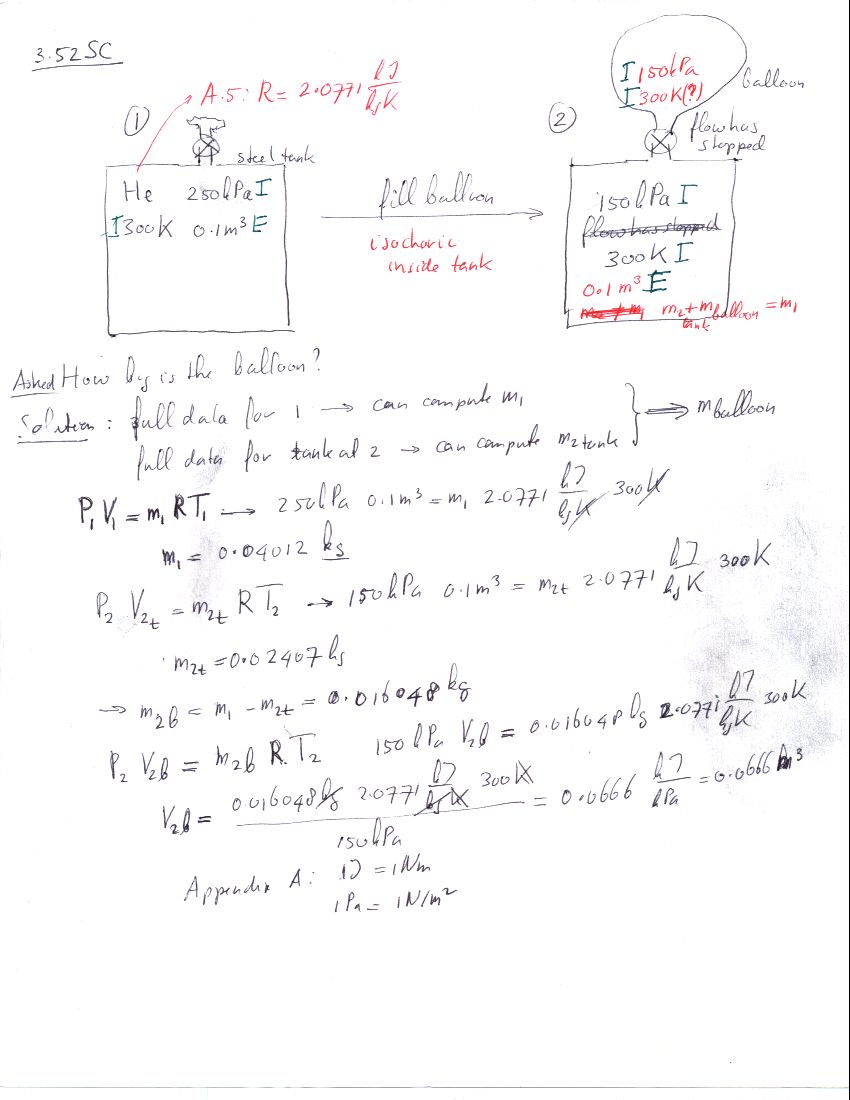 3.52SC
A.5: R = 2.0771 kJ/kgK
①
steel tank
He 250kPa I
I 300K 0.1m³ E
fill balloon
isochoric
inside tank
②
I 150kPa
I 300K(?)
balloon
flow has
stopped
150kPa I
flow has stopped
300K I
0.1 m³ E
m₂ ≠ m₁ m₂ tank + m balloon = m₁
Asked How big is the balloon?
Solution: full data for 1 → can compute m₁
full data for tank at 2 → can compute m₂tank
⟹ m balloon
P₁V₁ = m₁RT₁ → 250kPa 0.1m³ = m₁ 2.0771 kJ/kgK 300K
m₁ = 0.04012 kg
P₂ V₂t = m₂t RT₂ → 150kPa 0.1m³ = m₂t 2.0771 kJ/kgK 300K
m₂t = 0.02407 kg
→ m₂b = m₁ - m₂t = 0.016048 kg
P₂ V₂b = m₂b RT₂ 150kPa V₂b = 0.016048 kg 2.0771 kJ/kgK 300K
V₂b = 0.016048kg 2.0771 kJ/kgK 300K / 150kPa = 0.0666 kJ/kPa = 0.0666 m³
Appendix A: 1J = 1Nm
1Pa = 1N/m²